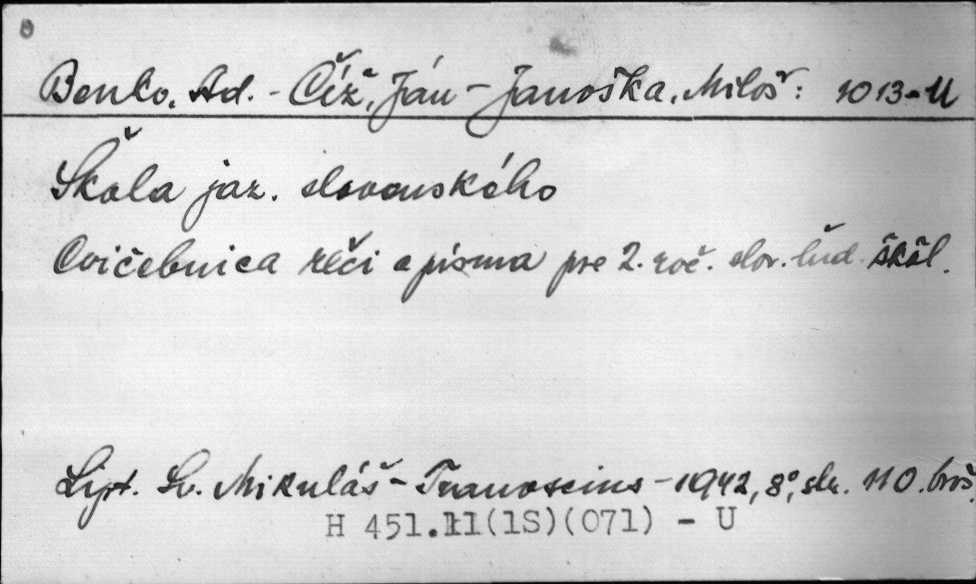 Benko, Ad. - Číž, Ján - Janoška, Miloš: 1013-U
Škola jaz. slovenského
Cvičebnica reči a písma pre 2. roč. slov. ľud. škôl.
Lipt. Sv. Mikuláš - Tranoscius - 1942, 8°, str. 110. broš.
H 451.11(1S)(071) - U